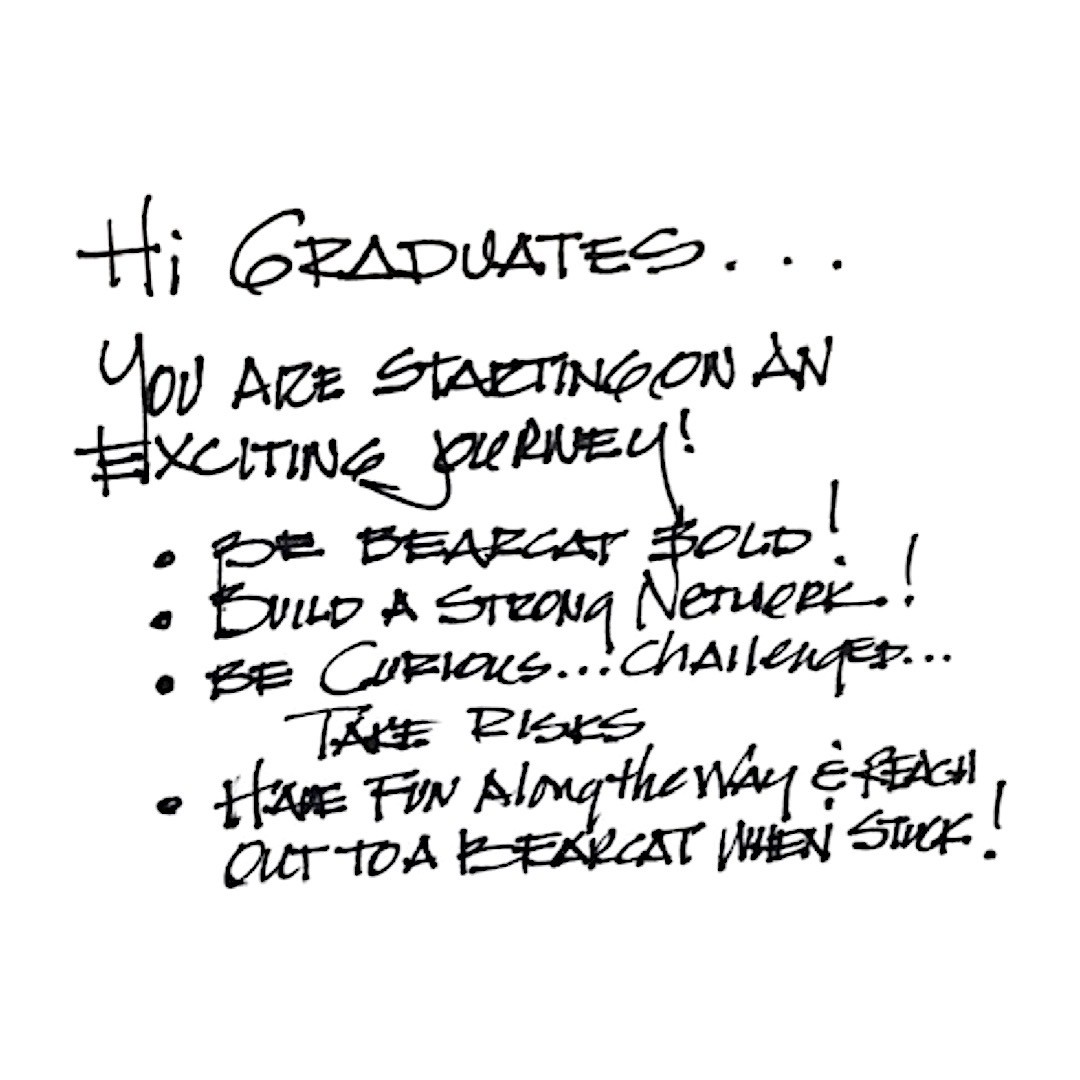 Hi GRADUATES...
YOU ARE STARTING ON AN
EXCITING JOURNEY!
• BE BEARCAT BOLD!
• BUILD A STRONG NETWORK!
• BE CURIOUS... Challenged...
TAKE RISKS
• HAVE FUN Along the Way & REACH
OUT TO A BEARCAT WHEN STUCK!